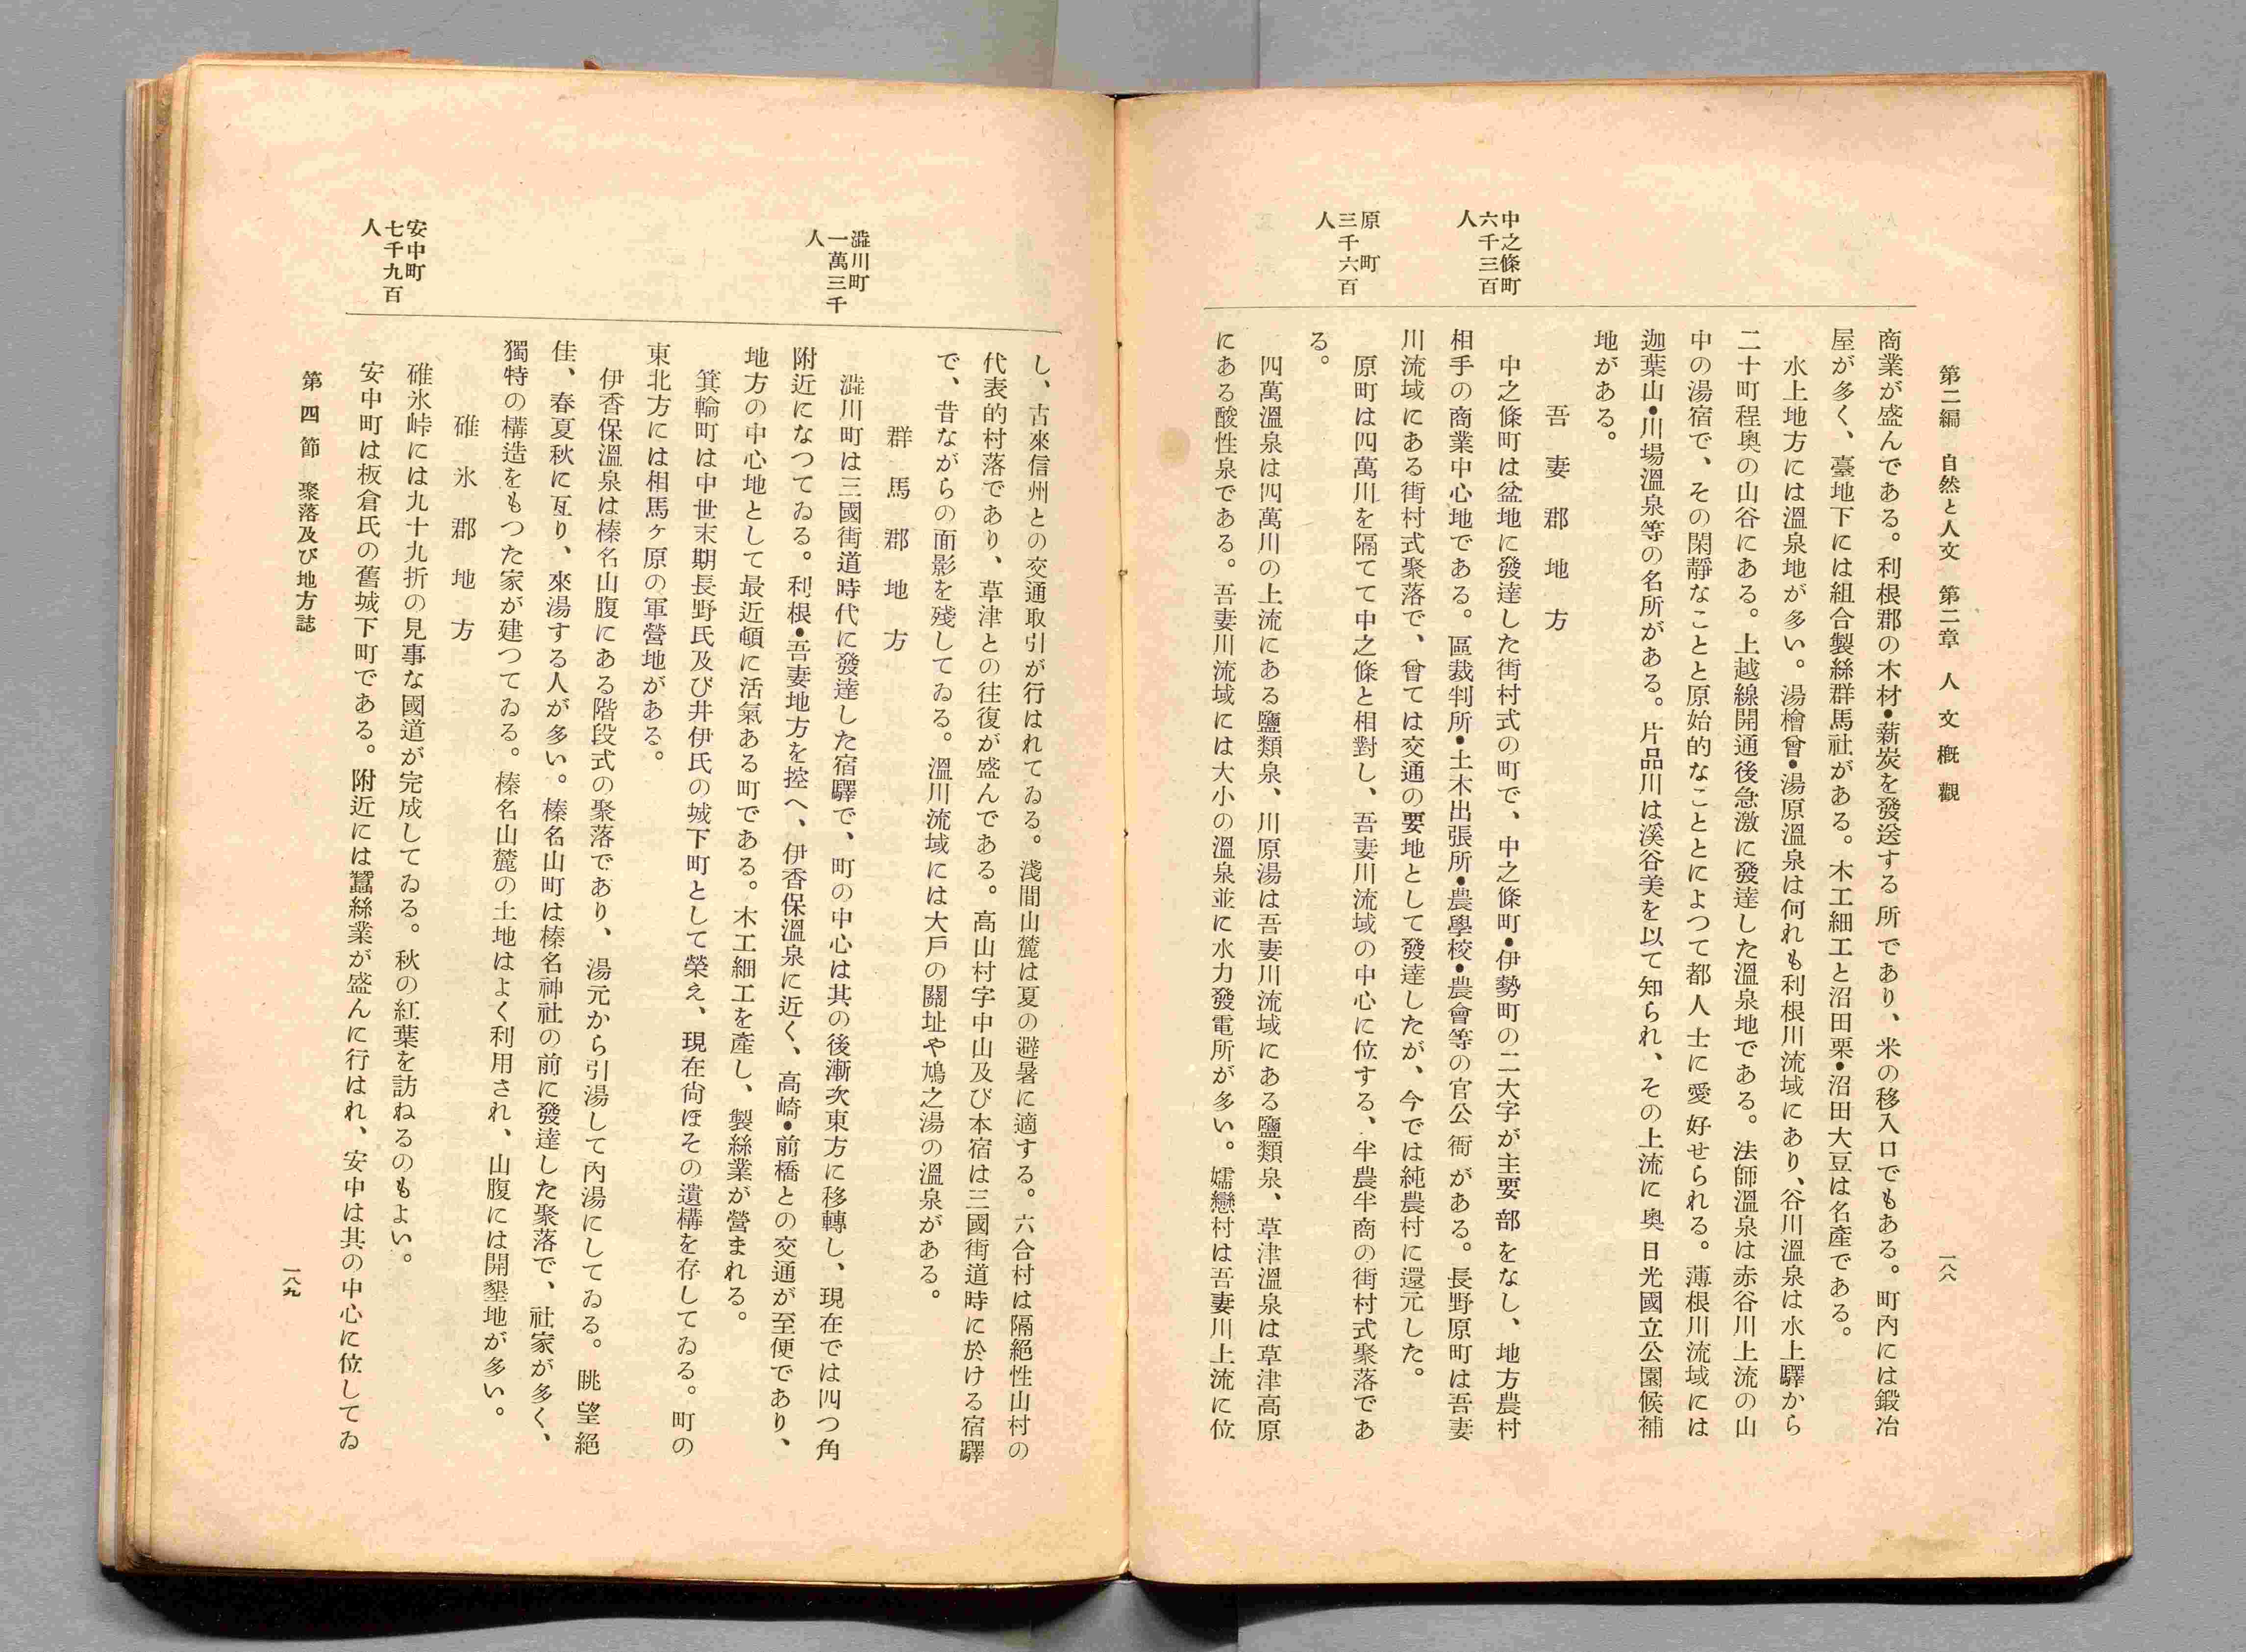 第二編　自然と人文　第二章　人文概觀
一八八
商業が盛んである。利根郡の木材・薪炭を發送する所であり、米の移入口でもある。町內には鍛冶
屋が多く、臺地下には組合製絲群馬社がある。木工細工と沼田栗・沼田大豆は名產である。
水上地方には溫泉地が多い。湯檜曾・湯原溫泉は何れも利根川流域にあり、谷川溫泉は水上驛から
二十町程奧の山谷にある。上越線開通後急激に發達した溫泉地である。法師溫泉は赤谷川上流の山
中の湯宿で、その閑靜なことと原始的なこととによつて都人士に愛好せられる。薄根川流域には
迦葉山・川場溫泉等の名所がある。片品川は溪谷美を以て知られ、その上流に奧日光國立公園候補
地がある。
吾妻郡地方
中之條町
六千三百
人
中之條町は盆地に發達した街村式の町で、中之條町・伊勢町の二大字が主要部をなし、地方農村
相手の商業中心地である。區裁判所・土木出張所・農學校・農會等の官公衙がある。長野原町は吾妻
川流域にある街村式聚落で、曾ては交通の要地として發達したが、今では純農村に還元した。
原町
三千六百
人
原町は四萬川を隔てて中之條と相對し、吾妻川流域の中心に位する、半農半商の街村式聚落であ
る。
四萬溫泉は四萬川の上流にある鹽類泉、川原湯は吾妻川流域にある鹽類泉、草津溫泉は草津高原
にある酸性泉である。吾妻川流域には大小の溫泉並に水力發電所が多い。嬬戀村は吾妻川上流に位
し、古來信州との交通取引が行はれてゐる。淺間山麓は夏の避暑に適する。六合村は隔絕性山村の
代表的村落であり、草津との往復が盛んである。高山村字中山及び本宿は三國街道時に於ける宿驛
で、昔ながらの面影を殘してゐる。溫川流域には大戶の關址や鳩之湯の溫泉がある。
群馬郡地方
澁川町
一萬三千
人
澁川町は三國街道時代に發達した宿驛で、町の中心は其の後漸次東方に移轉し、現在では四つ角
附近になつてゐる。利根・吾妻地方を控へ、伊香保溫泉に近く、高崎・前橋との交通が至便であり、
地方の中心地として最近頓に活氣ある町である。木工細工を產し、製絲業が營まれる。
箕輪町は中世末期長野氏及び井伊氏の城下町として榮え、現在尙ほその遺構を存してゐる。町の
東北方には相馬ヶ原の軍營地がある。
伊香保溫泉は榛名山腹にある階段式の聚落であり、湯元から引湯して內湯にしてゐる。眺望絕
佳、春夏秋に亙り、來湯する人が多い。榛名山町は榛名神社の前に發達した聚落で、社家が多く、
獨特の構造をもつた家が建つてゐる。榛名山麓の土地はよく利用され、山腹には開墾地が多い。
碓氷郡地方
碓氷峠には九十九折の見事な國道が完成してゐる。秋の紅葉を訪ねるのもよい。
安中町
七千九百
人
安中町は板倉氏の舊城下町である。附近には蠶絲業が盛んに行はれ、安中は其の中心に位してゐ
第四節　聚落及び地方誌
一八九